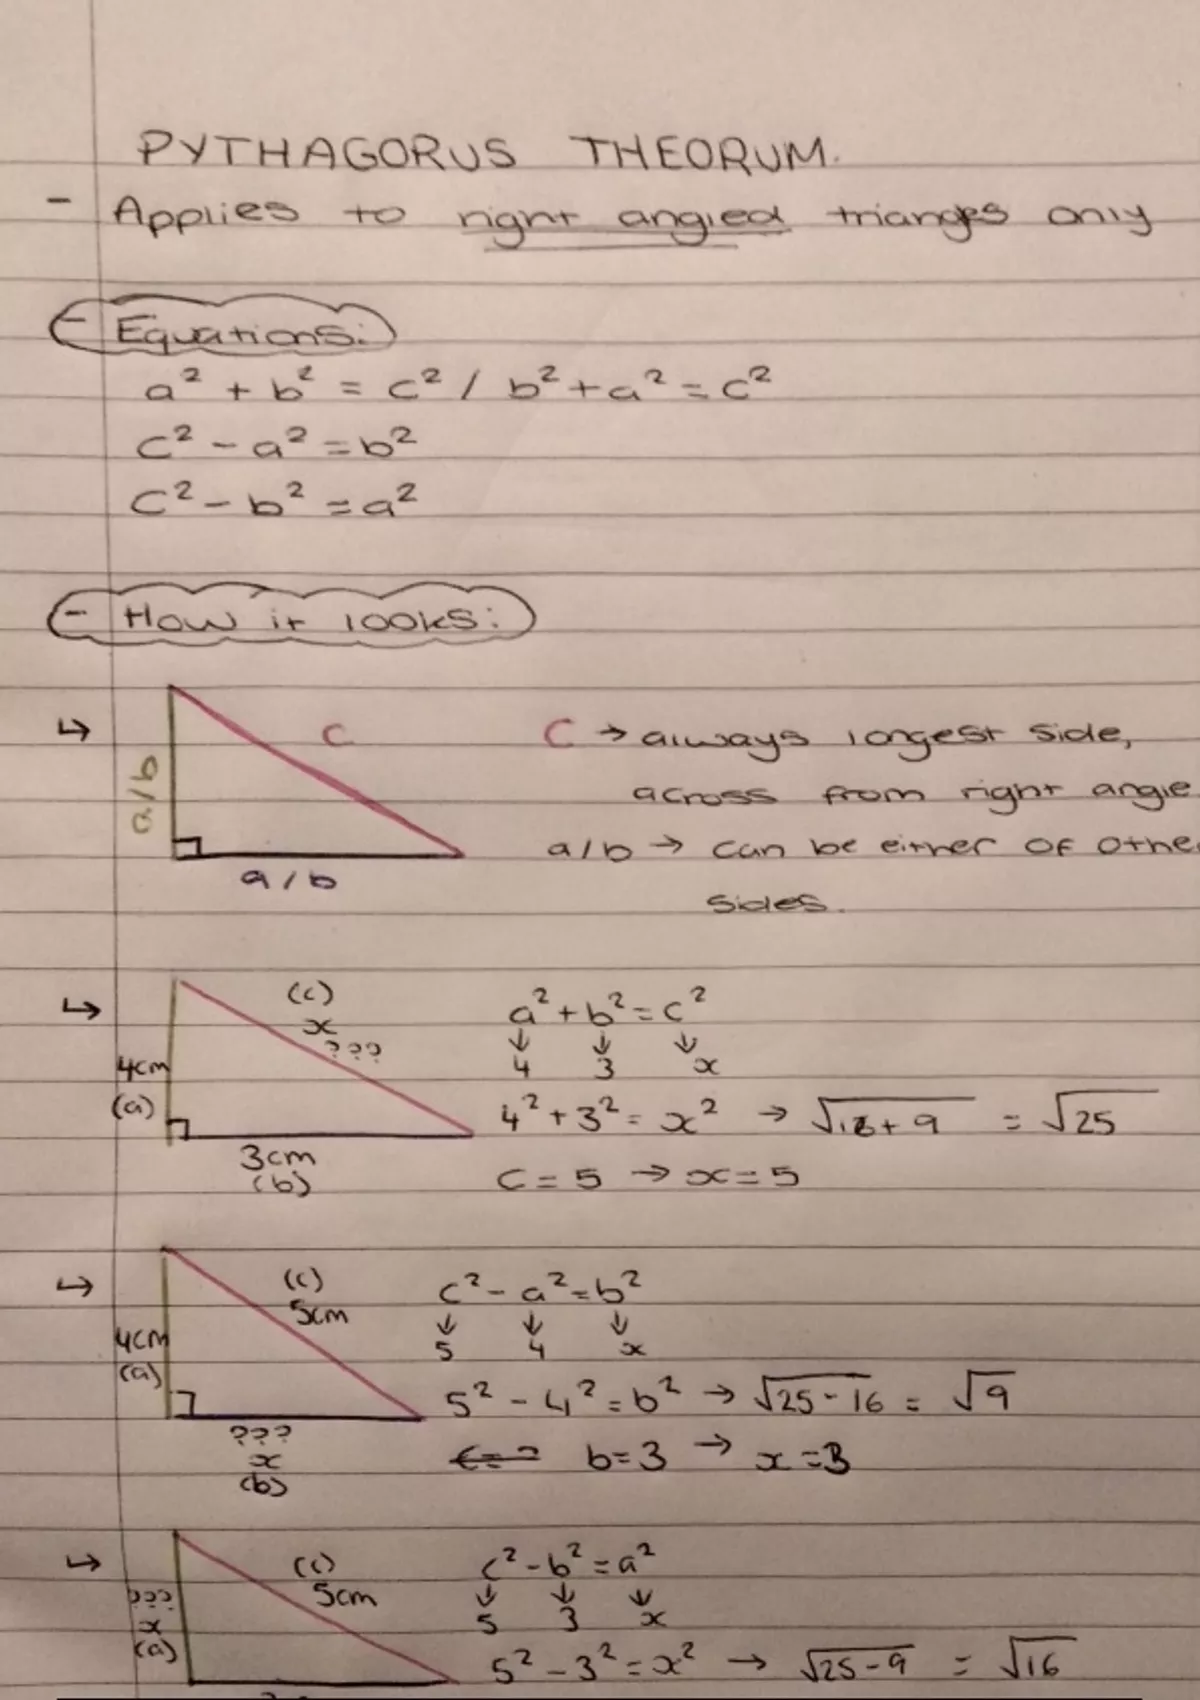 PYTHAGORUS THEORUM.
- Applies to right angled triangles only
- Equations:
a² + b² = c² / b² + a² = c²
c² - a² = b²
c² - b² = a²
- How it looks:
↳ a/b c
a/b
c → always longest side,
across from right angle
a/b → can be either of othe
sides.
↳ (c)
x
???
4cm
(a)
3cm
(b)
a² + b² = c²
↓ ↓ ↓
4 3 x
4² + 3² = x² → √16 + 9 = √25
c = 5 → x = 5
↳ (c)
5cm
4cm
(a)
???
x
(b)
c² - a² = b²
↓ ↓ ↓
5 4 x
5² - 4² = b² → √25 - 16 = √9
b = 3 → x = 3
↳ (c)
5cm
???
x
(a)
c² - b² = a²
↓ ↓ ↓
5 3 x
5² - 3² = x² → √25 - 9 = √16